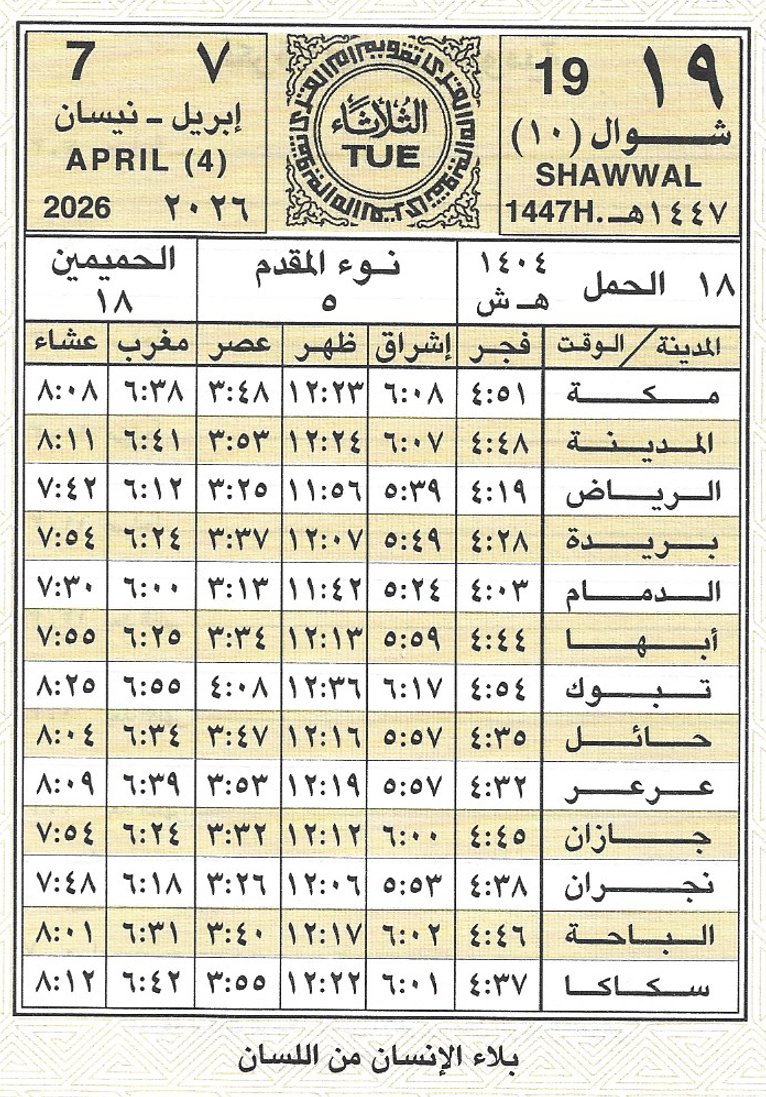 ١٩ 19
شوال (١٠)
SHAWWAL
١٤٤٧هـ 1447H.
الثلاثاء
TUE
٧ 7
إبريل - نيسان
APRIL (4)
2026 ٢٠٢٦
١٨ الحمل ١٤٠٤ هـ ش
نوء المقدم ٥
الحميمين ١٨
المدينة / الوقت فجر إشراق ظهر عصر مغرب عشاء
مكة ٤:٥١ ٦:٠٨ ١٢:٢٣ ٣:٤٨ ٦:٣٨ ٨:٠٨
المدينة ٤:٤٨ ٦:٠٧ ١٢:٢٤ ٣:٥٣ ٦:٤١ ٨:١١
الرياض ٤:١٩ ٥:٣٩ ١١:٥٦ ٣:٢٥ ٦:١٢ ٧:٤٢
بريدة ٤:٢٨ ٥:٤٩ ١٢:٠٧ ٣:٣٧ ٦:٢٤ ٧:٥٤
الدمام ٤:٠٣ ٥:٢٤ ١١:٤٢ ٣:١٣ ٦:٠٠ ٧:٣٠
أبها ٤:٤٤ ٥:٥٩ ١٢:١٣ ٣:٣٤ ٦:٢٥ ٧:٥٥
تبوك ٤:٥٤ ٦:١٧ ١٢:٣٦ ٤:٠٨ ٦:٥٥ ٨:٢٥
حائل ٤:٣٥ ٥:٥٧ ١٢:١٦ ٣:٤٧ ٦:٣٤ ٨:٠٤
عرعر ٤:٣٢ ٥:٥٧ ١٢:١٩ ٣:٥٣ ٦:٣٩ ٨:٠٩
جازان ٤:٤٥ ٦:٠٠ ١٢:١٢ ٣:٣٢ ٦:٢٤ ٧:٥٤
نجران ٤:٣٨ ٥:٥٣ ١٢:٠٦ ٣:٢٦ ٦:١٨ ٧:٤٨
الباحة ٤:٤٦ ٦:٠٢ ١٢:١٧ ٣:٤٠ ٦:٣١ ٨:٠١
سكاكا ٤:٣٧ ٦:٠١ ١٢:٢٢ ٣:٥٥ ٦:٤٢ ٨:١٢
بلاء الإنسان من اللسان